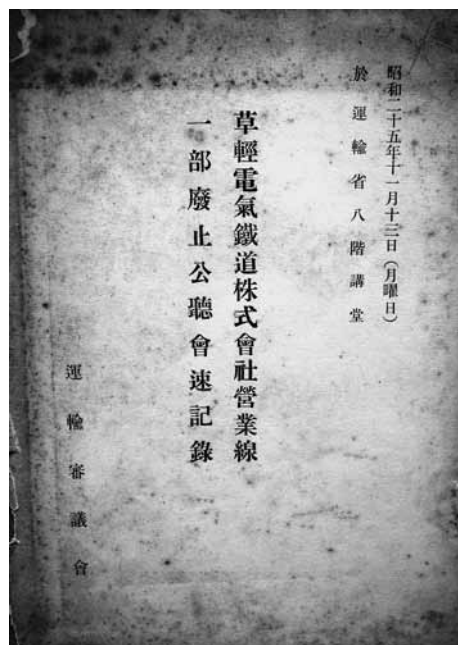 昭和二十五年十一月十三日（月曜日）
於運輸省八階講堂
草輕電氣鐵道株式會社營業線
一部廢止公聽會速記錄
運輸審議會